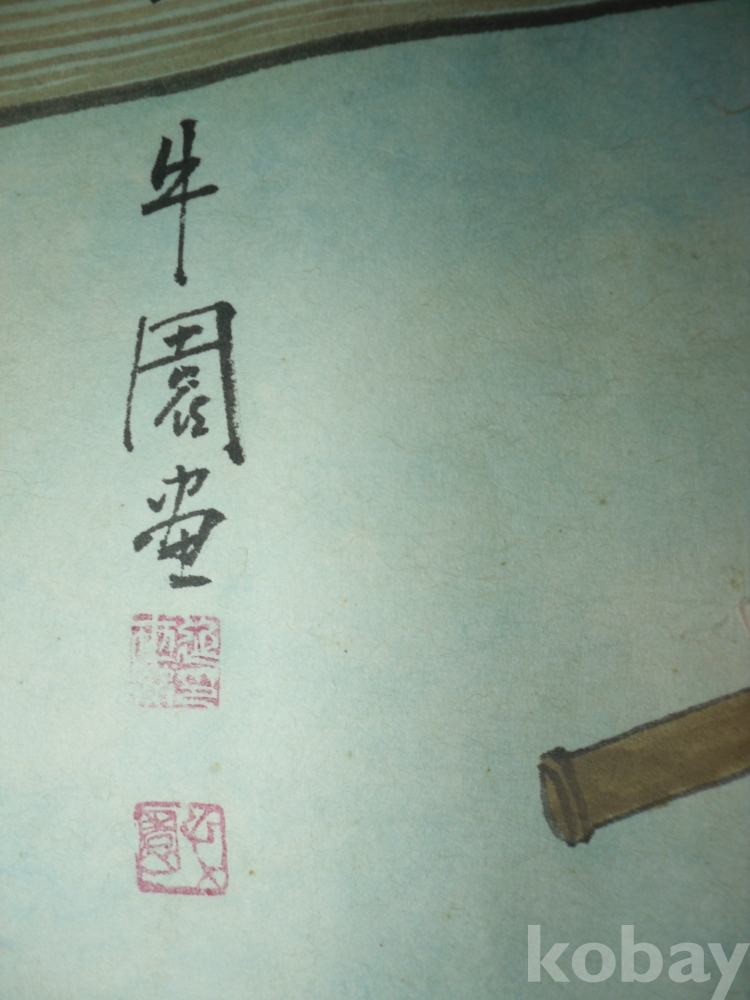 牛園畫
kobay